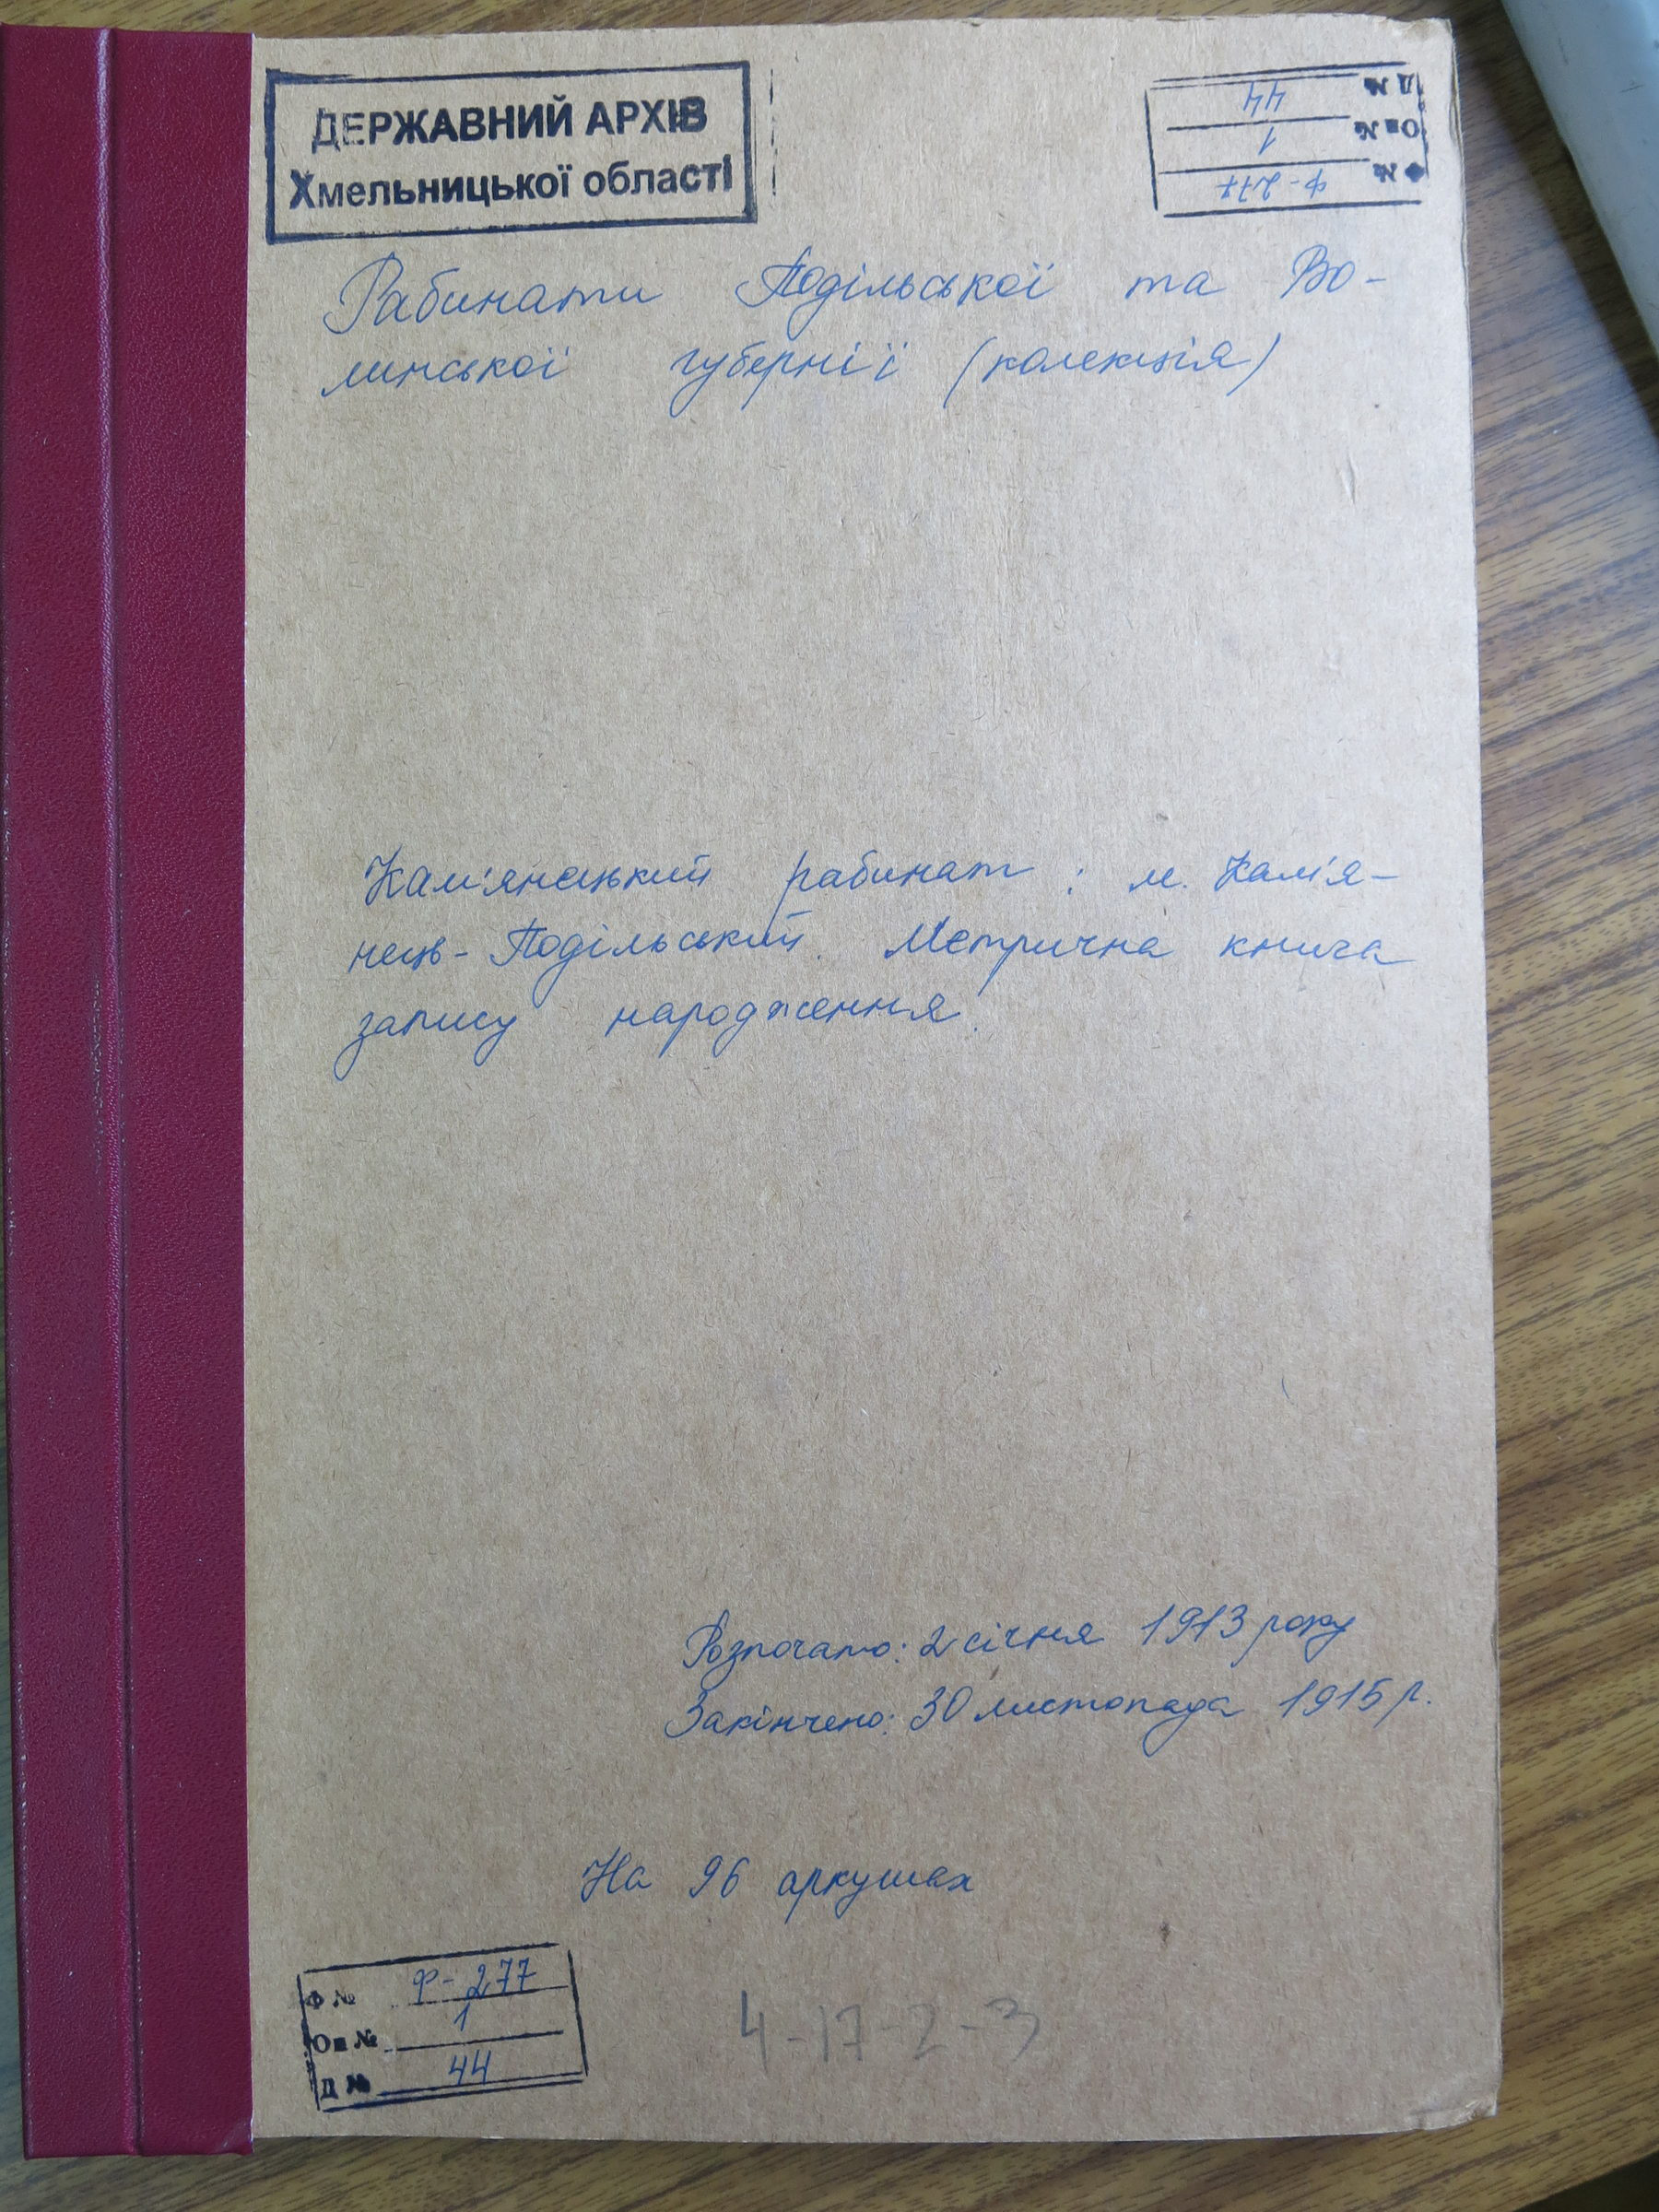 ДЕРЖАВНИЙ АРХІВ
Хмельницької області
Ф № Ф-277
Оп № 1
Д № 44
Рабинати Подільської та Во-
линської губернії (колекція)
Кам'янецький рабинат: м. Кам'я-
нець-Подільський. Метрична книга
запису народження.
Розпочато: 2 січня 1913 року
Закінчено: 30 листопада 1915 р.
На 96 аркушах
Ф № Ф-277
Оп № 1
Д № 44
4-17-2-3